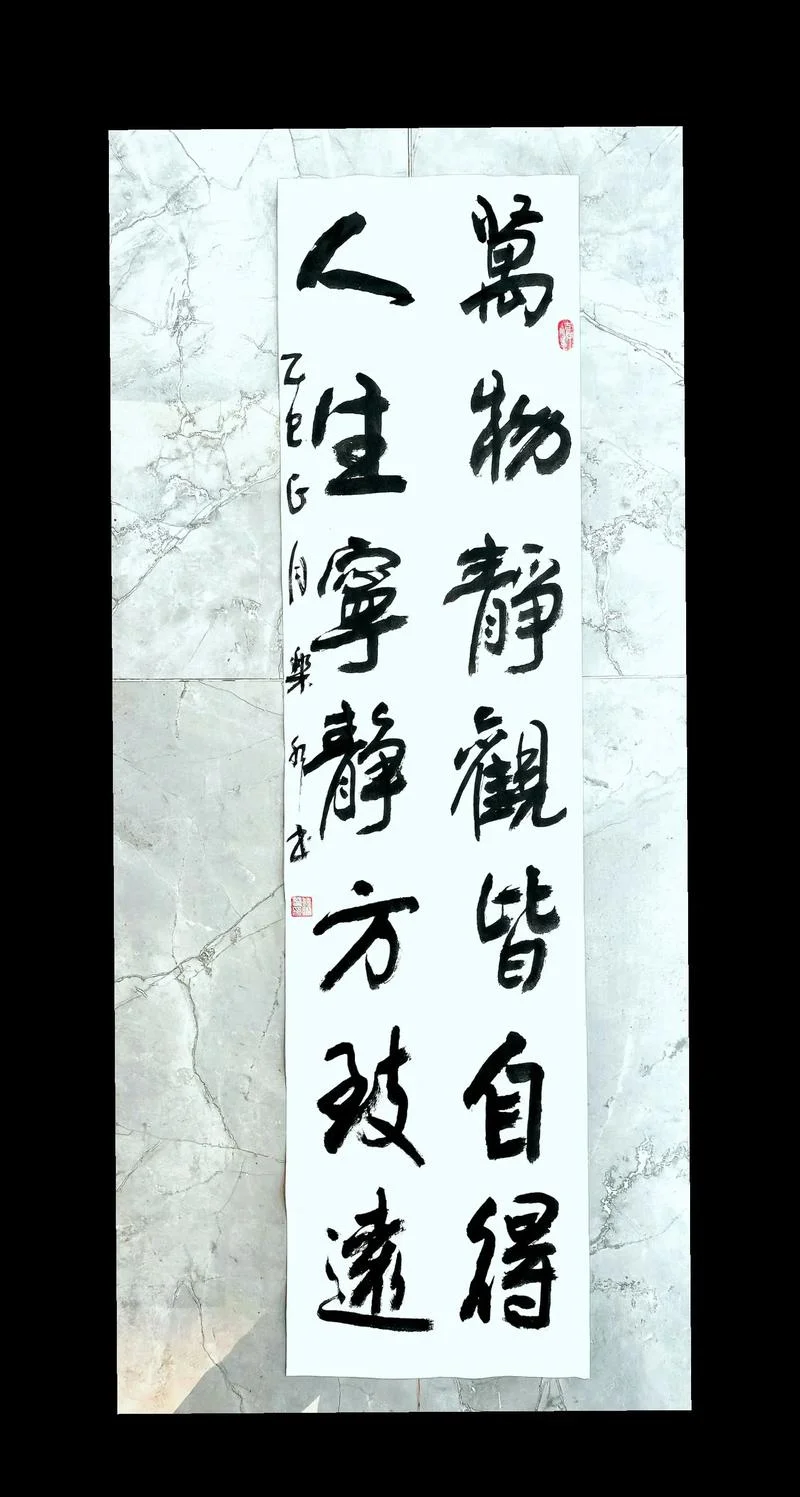 萬物靜觀皆自得
人生寧靜方致遠
乙巳正月樂水書